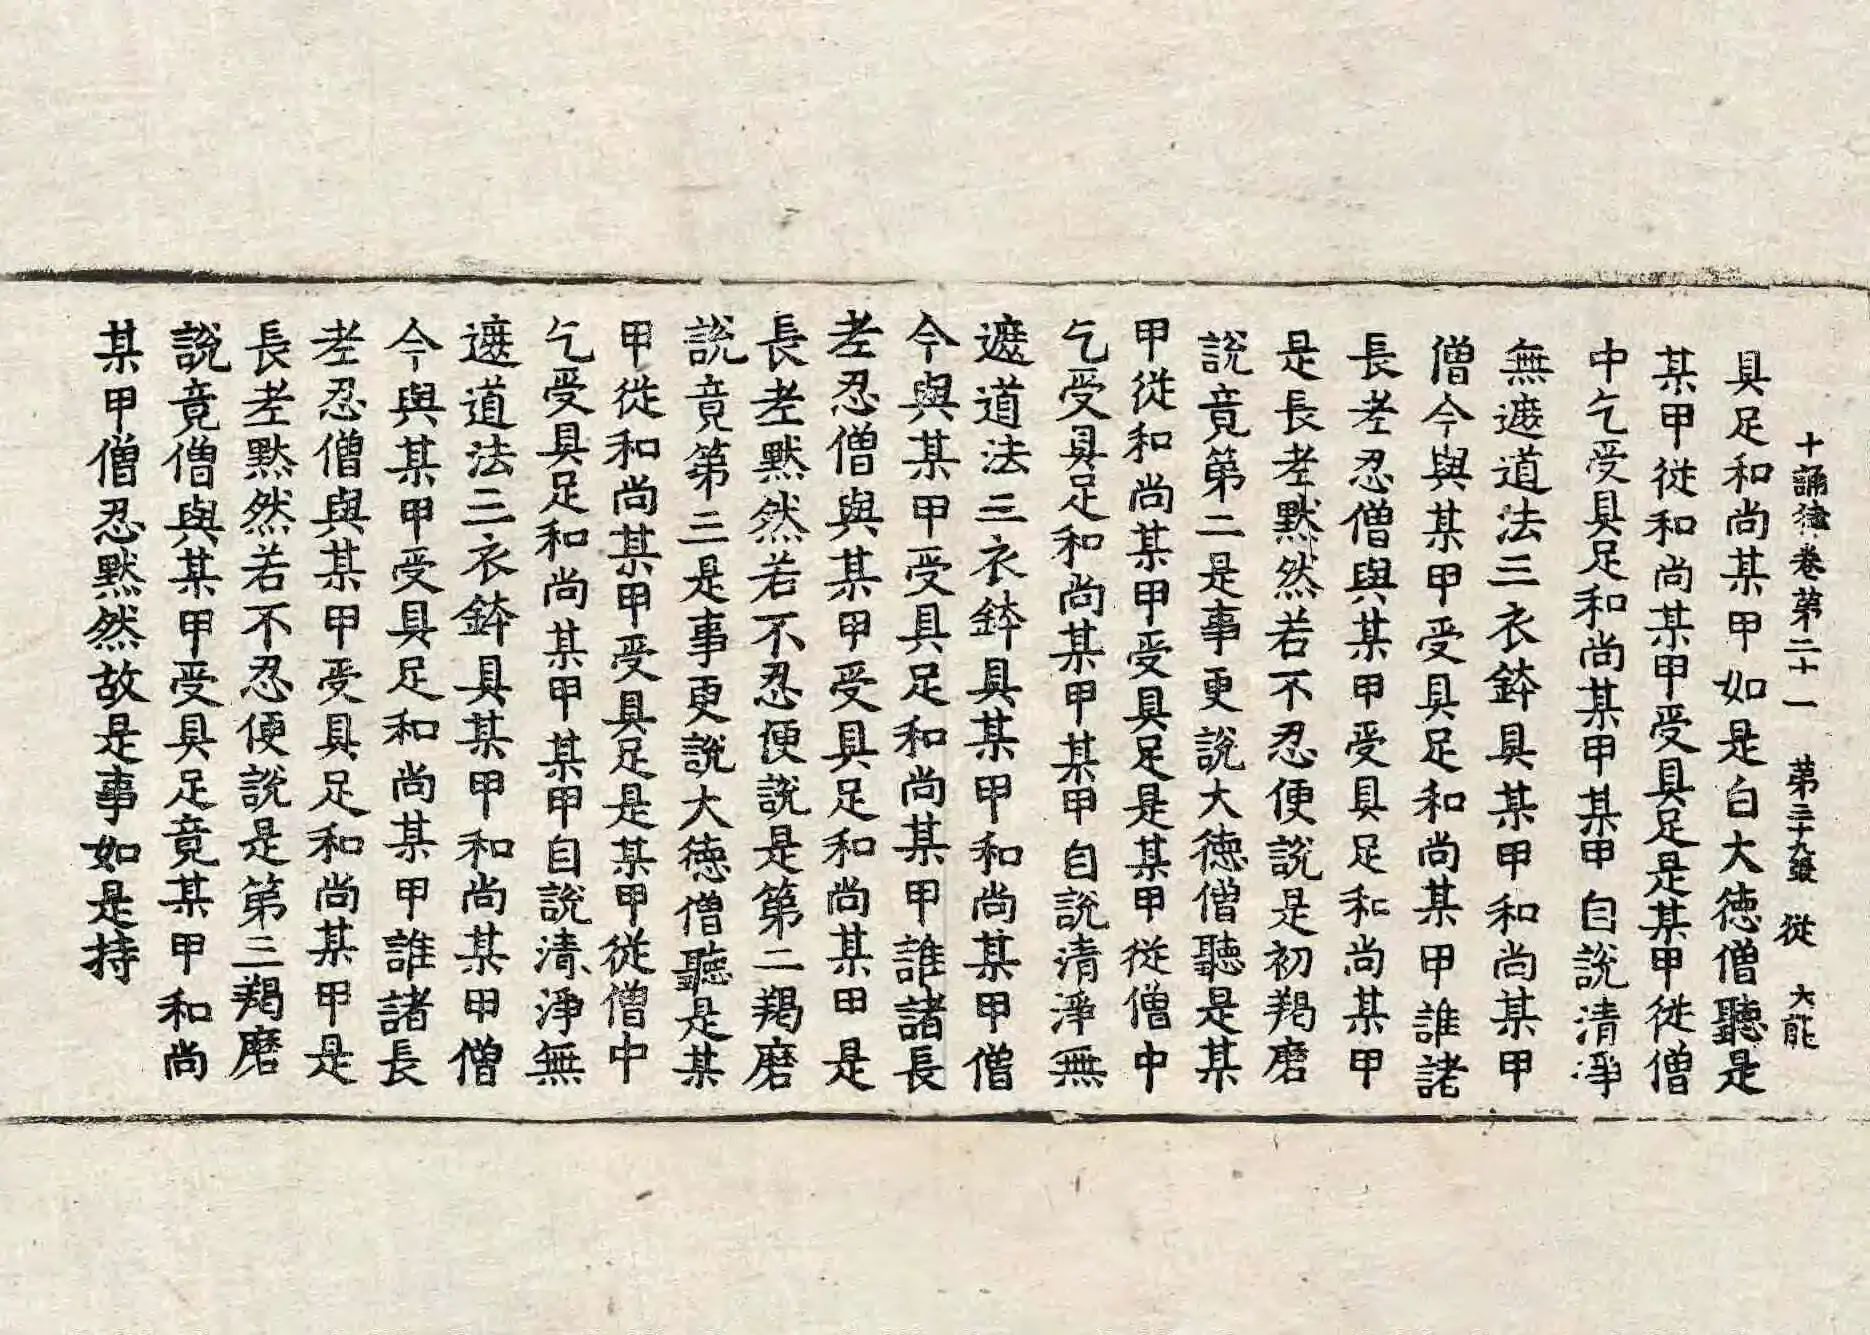 十誦律卷第二十一 第三十九張 從 大能
具足和尚某甲如是白大德僧聽是
某甲從和尚某甲受具足是某甲從僧
中乞受具足和尚某甲某甲自說清淨
無遮道法三衣鉢具某甲和尚某甲
僧今與某甲受具足和尚某甲誰諸
長老忍僧與某甲受具足和尚某甲
是長老黙然若不忍便說是初羯磨
說竟第二是事更說大德僧聽是某
甲從和尚某甲受具足是某甲從僧中
乞受具足和尚某甲某甲自說清淨無
遮道法三衣鉢具某甲和尚某甲僧
今與某甲受具足和尚某甲誰諸長
老忍僧與某甲受具足和尚某甲是
長老黙然若不忍便說是第二羯磨
說竟第三是事更說大德僧聽是某
甲從和尚某甲受具足是某甲從僧中
乞受具足和尚某甲某甲自說清淨無
遮道法三衣鉢具某甲和尚某甲僧
今與某甲受具足和尚某甲誰諸長
老忍僧與某甲受具足和尚某甲是
長老黙然若不忍便說是第三羯磨
說竟僧與某甲受具足竟某甲和尚
某甲僧忍黙然故是事如是持